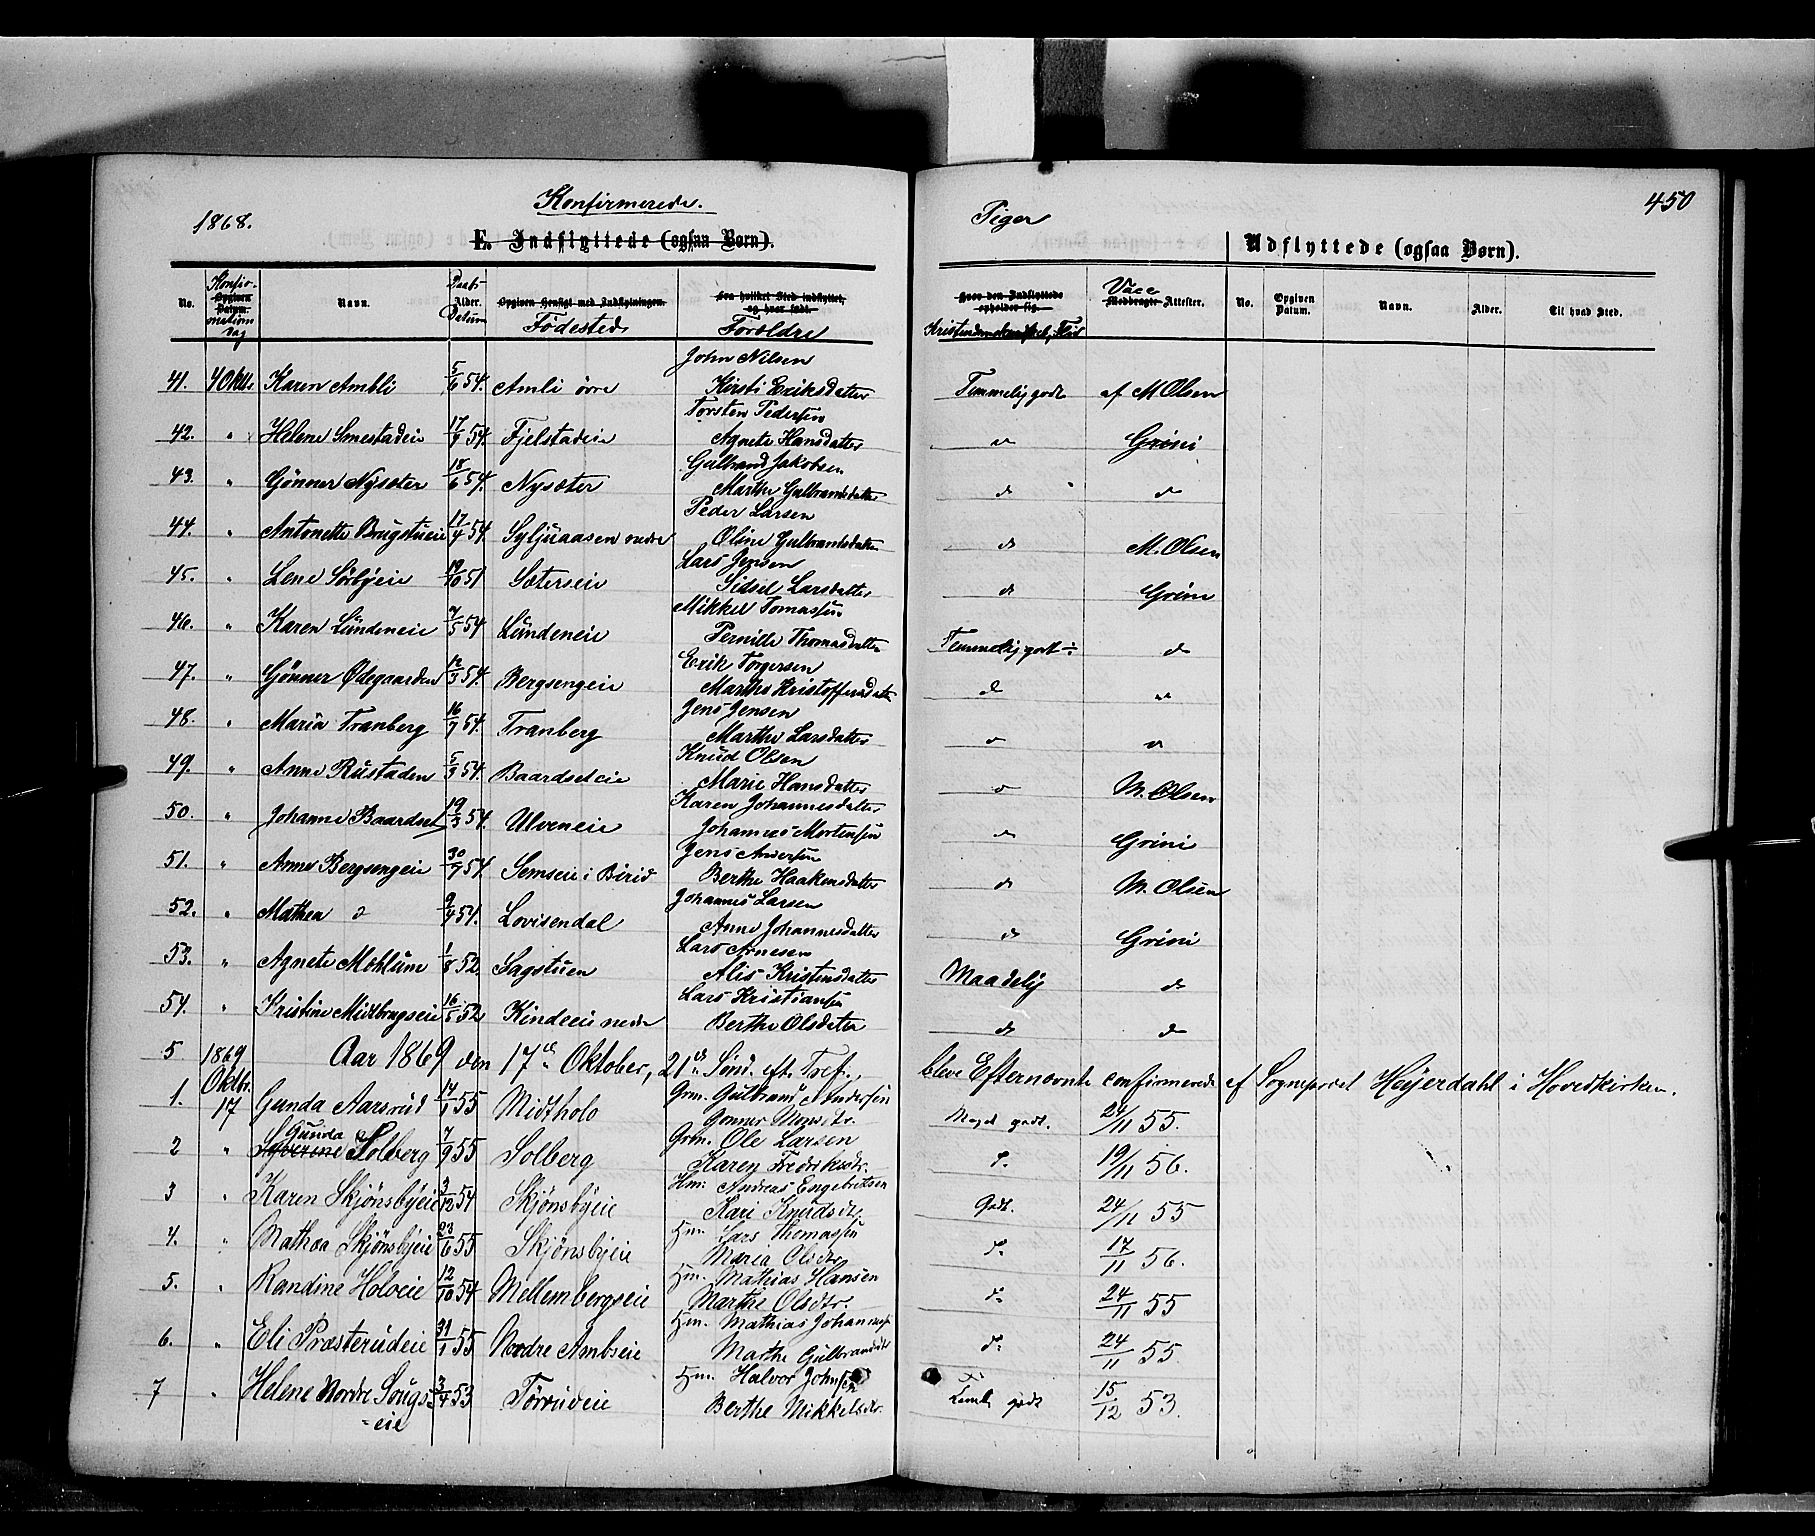 1868.
Konfirmerede.
E. Indflyttede (ogsaa Børn).
Piger
450
Udflyttede (ogsaa Børn).
No. Konfirmations Dag Opgiven Datum. Navn. Daabs Datum Alder. Opgiven Hensigt med Indflytningen. Fødested Fra hvilket Sted indflyttet, og hvor født. Forældre Hvor den Indflyttede opholder sig. Vacc. Medbragte Attester. No. Opgiven Datum. Navn. Alder. Til hvad Sted.
John Nilsen
41. Karen Ambli 5/6 54. Amli Kirsti Eriksdatter Temmelig godt af M Olsen
Torsten Pedersen
42. " Helene Smestadeie 17/9 54. Fjelstadeie Agnete Hansdatter d Grini
Gulbrand Jakobsen
43. " Gønner Nysæter 18/6 54. Nysæter Marthe Gulbrandsdatter d d
Peder Larsen
44. " Antonette Brugstueie 17/4 54. Syljuaasen nedre Oline Gulbrandsdatter d M. Olsen
Lars Jensen
45. " Lene Sørbyeie 19/10 51 Sæterseie Sidsel Larsdatter d Grini
Mikkel Tomassen
46. " Karen Lundeneie 7/5 54 Lundeneie Pernille Thomasdatter Temmelig godt ÷ d
Erik Torgersen
47. " Gønner Ødegaarden 12/3 54. Bergsengeie Marthe Kristoffersdatter d "
Jens Jensen
48. " Maria Tranberg 16/7 54. Tranberg Marthe Larsdatter d d
Knud Olsen
49. " Anne Rustaden 5/3 54. Baardseteie Marie Hansdatter d M. Olsen
Karen Johannesdatter
50. " Johanne Baardset 19/3 54. Ulveneie Johannes Mortensen d Grini
Jens Andersen
51. " Anne Bergsengeie 30/7 54. Semseie i Birid Berthe Haakensdatter d M. Olsen
Johannes Larsen
52. " Mathea d 9/4 54. Lovisendal Anne Johannesdatter d Grini
Lars Arnesen
53. " Agnete Mohlum 1/8 52 Sagstuen Alis Kristensdatter Maadelig d
Lars Kristiansen
54. " Kristine Midtbrugseie 16/5 52 Kindeeie nedre Berthe Olsdatter d d
5. 1869 Aar 1869 den 17de Oktober, 21de Sønd. eft. Tref., bleve Efternævnte confirmerede af Sogneprest Heyerdahl i Hovedkirken.
Oktbr. Grm. Gulbrand Andersen
1. 17 Gunda Aarsrud 14/1 55 Midtholo Gonner Monsdtr. Meget godt. 24/11 55.
Gunda Grm. Ole Larsen
2 " Syverine Solberg 7/9 55 Solberg Karen Fredriksdtr. d. 19/11 56.
Hm: Andreas Engebretsen
3 " Karen Skjønsbyeie 3/12 54 Skjønsbyeie Kari Knudsdtr. Godt. 24/11 55
Hm. Lars Thomassen
4. " Mathea Skjønsbyeie 23/6 55 Skjønsbyeie Maria Olsdtr. d. 17/11 56.
Hm. Mathias Hansen
5. " Randine Holoeie 12/10 54 Mellembergseie Marthe Olsdtr. d. 24/11 55
Hm. Mathias Johannes
6. " Eli Præsterudeie 31/1 55 Nordre Ambseie Marthe Gulbrandsdtr d. 24/11 55.
Hm. Halvor Johnsen
7 " Helene Nordre Sougs-eie 3/4 53 Tørrudeie Berthe Mikkelsdtr. godt 15/12 53.